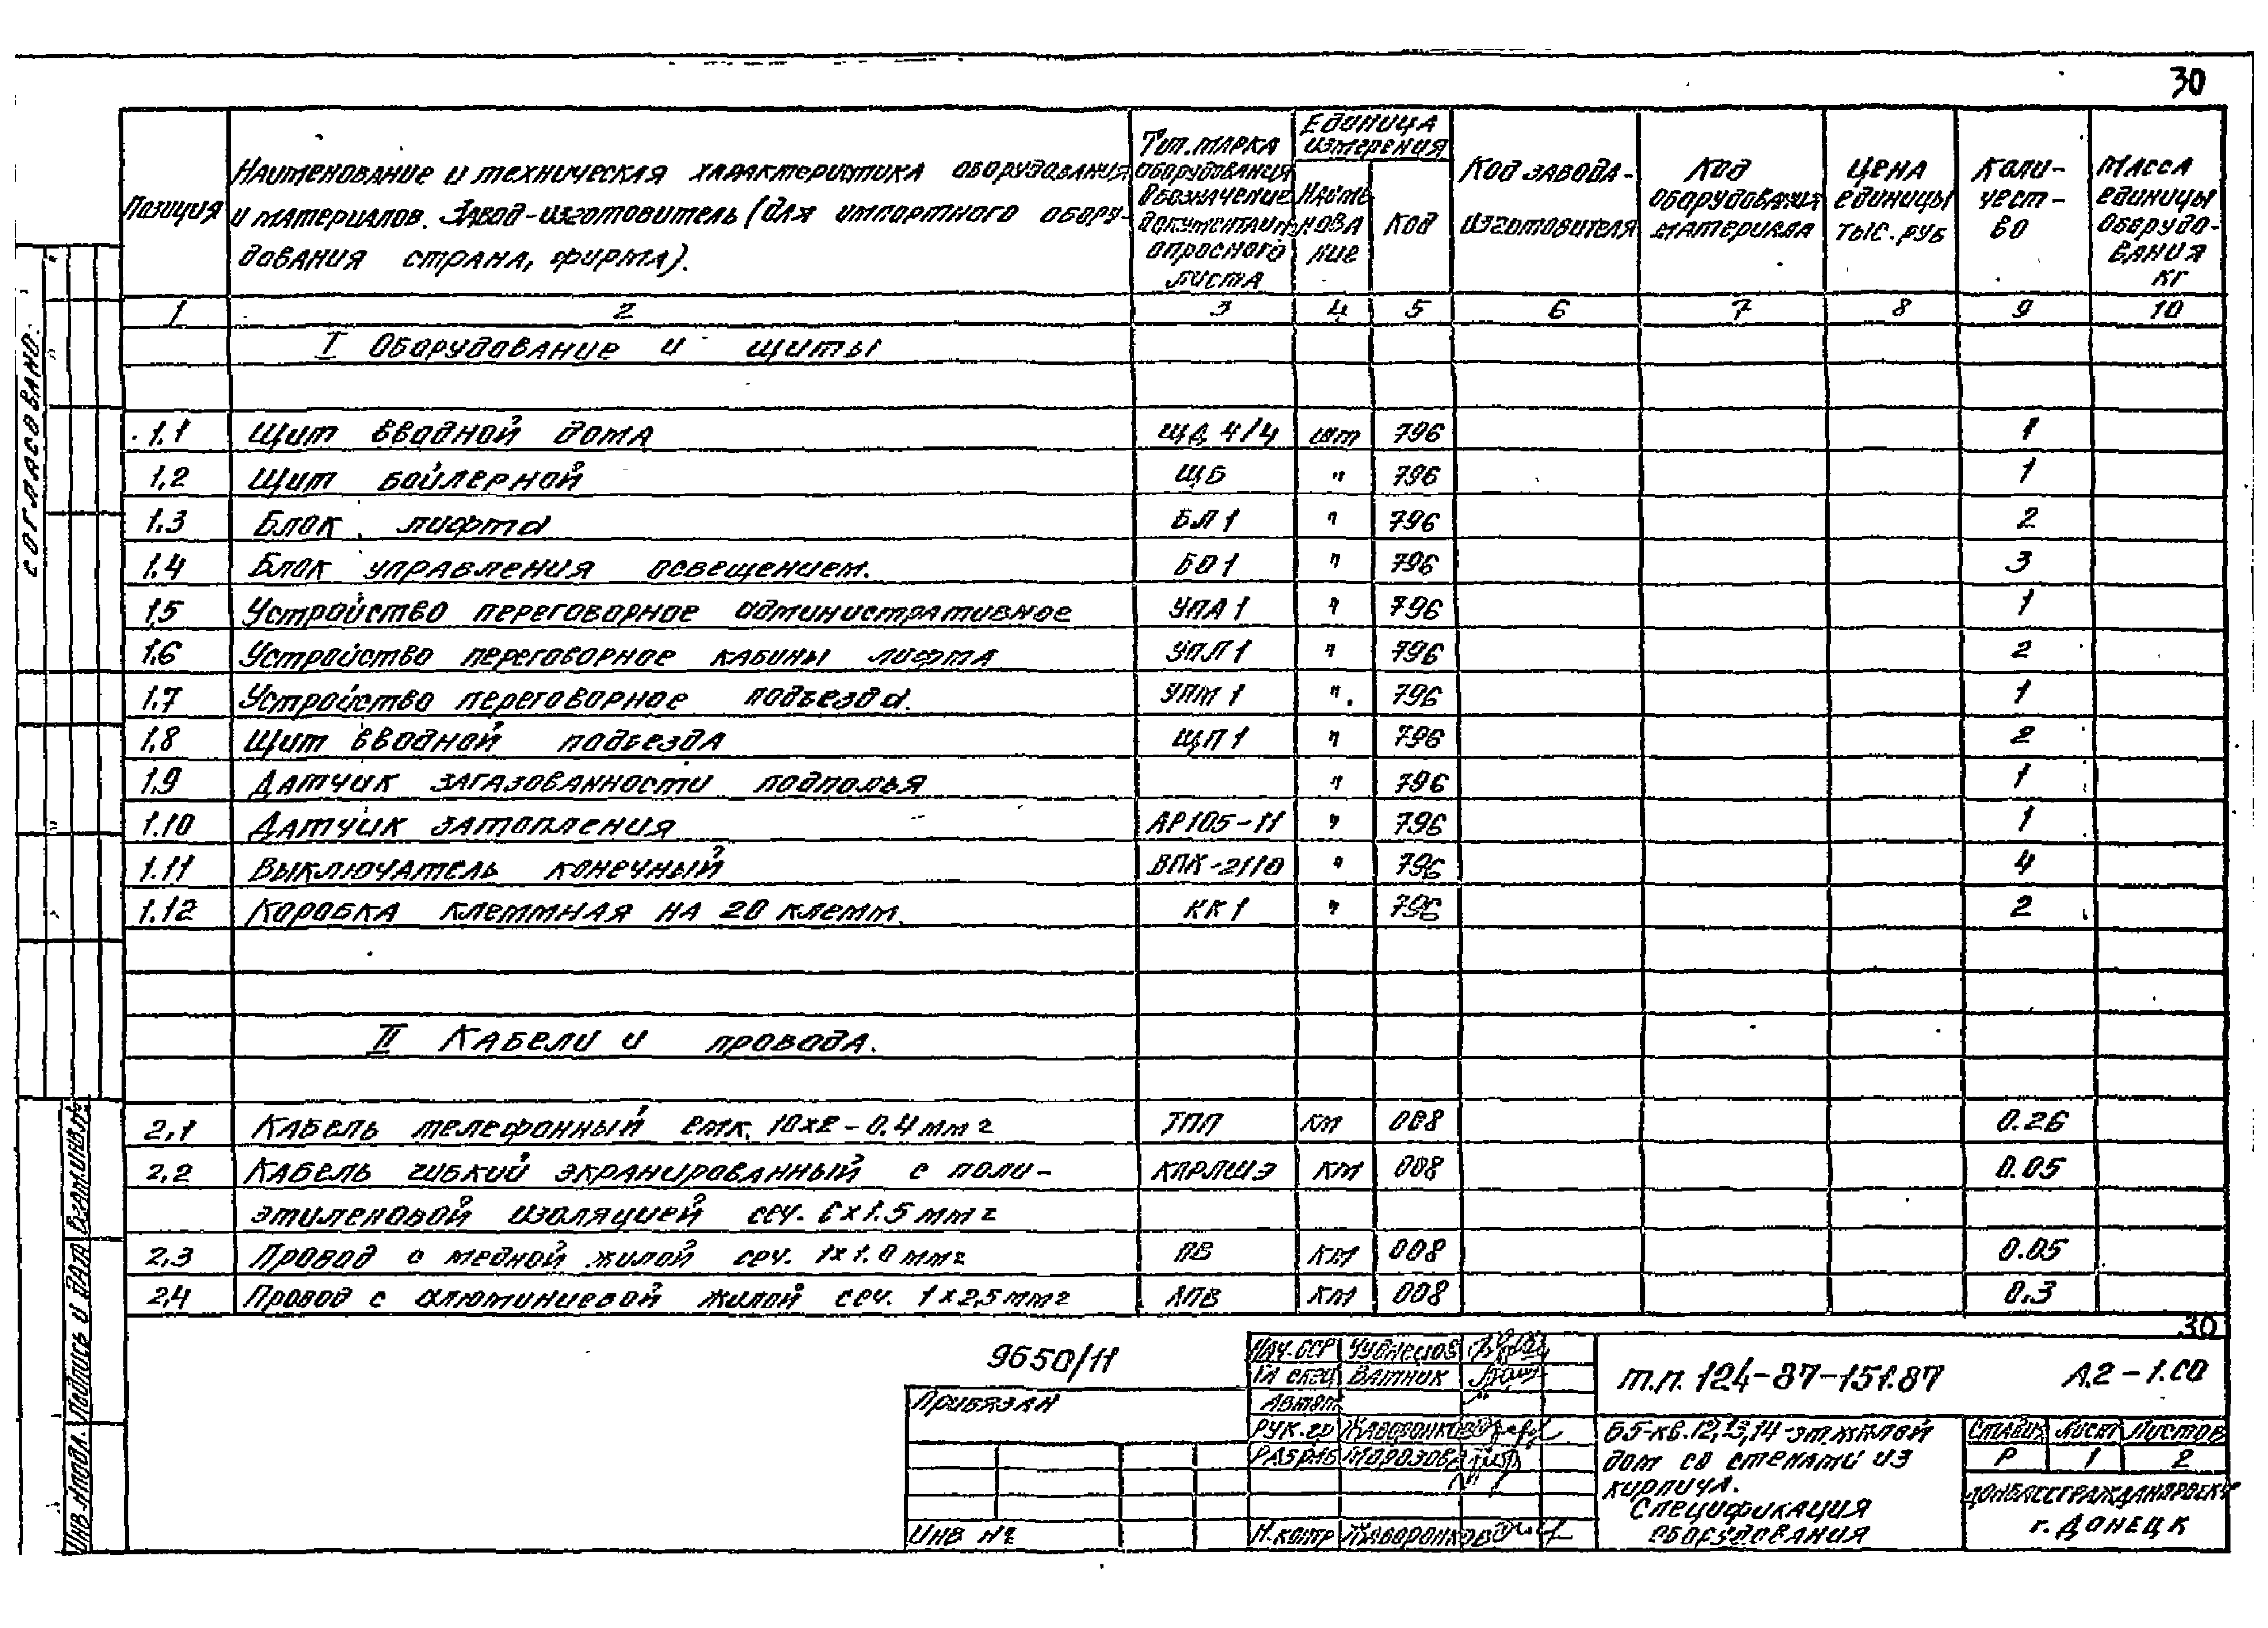 30
Позиция
Наименование и техническая характеристика оборудования
и материалов. Завод-изготовитель (для импортного обору-
дования страна, фирма).
Тип. марка
оборудования
Обозначение
документации
опросного
листа
Единица
измерения
Наиме
нова
ние
Код
Код завода-
изготовителя
Код
оборудования
материала
Цена
единицы
тыс. руб
Коли-
чест-
во
Масса
единицы
оборудо-
вания
кг
1 2 3 4 5 6 7 8 9 10
I Оборудование и щиты
1.1 Щит вводной дома ЩД 4/4 шт 796 1
1.2 Щит бойлерной ЩБ " 796 1
1.3 Блок лифта БЛ 1 " 796 2
1.4 Блок управления освещением. БО 1 " 796 3
1.5 Устройство переговорное административное УПА 1 " 796 1
1.6 Устройство переговорное кабины лифта УПЛ 1 " 796 2
1.7 Устройство переговорное подъезда. УПМ 1 " 796 1
1.8 Щит вводной подъезда ЩП 1 " 796 2
1.9 Датчик загазованности подполья " 796 1
1.10 Датчик затопления АР105-11 " 796 1
1.11 Выключатель конечный ВПК-2110 " 796 4
1.12 Коробка клеммная на 20 клемм. КК 1 " 796 2
II Кабели и провода.
2.1 Кабель телефонный емк. 10х2-0.4 мм2 ТПП км 008 0.26
2.2 Кабель гибкий экранированный с поли- КПРЛШЭ км 008 0.05
этиленовой изоляцией сеч. 6х1.5 мм2
2.3 Провод с медной жилой сеч. 1х1.0 мм2 ПВ км 008 0.05
2.4 Провод с алюминиевой жилой сеч. 1х2,5 мм2 АПВ км 008 0.3
30
СОГЛАСОВАНО:
Взам.инв.№
Подпись и дата
Инв.№подл.
9650/11
Привязан
Инв №
Гл спец Ватник
Автом.
Рук.гр Жаворонкова
Разраб Морозова
Н.контр Жаворонкова
т.п. 124-87-151.87 А.2-1.СО
65-кв. 12,13,14-эт. жилой
дом со стенами из
кирпича.
Спецификация
оборудования
Стадия Лист Листов
Р 1 2
ДОНБАССГРАЖДАНПРОЕКТ
г. ДОНЕЦК